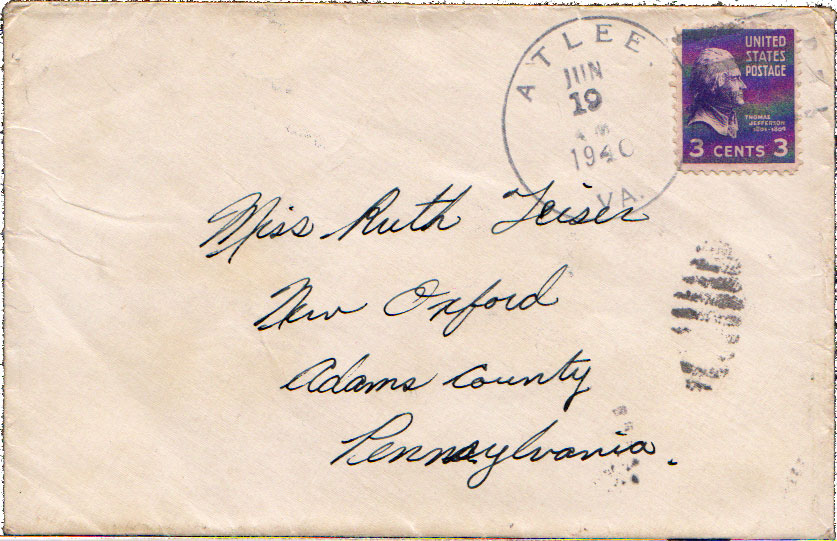 ATLEE
JUN
19
1940
VA.
UNITED
STATES
POSTAGE
THOMAS
JEFFERSON
1801-1809
3 CENTS 3
Miss Ruth Zeiser
New Oxford
Adams County
Pennsylvania.